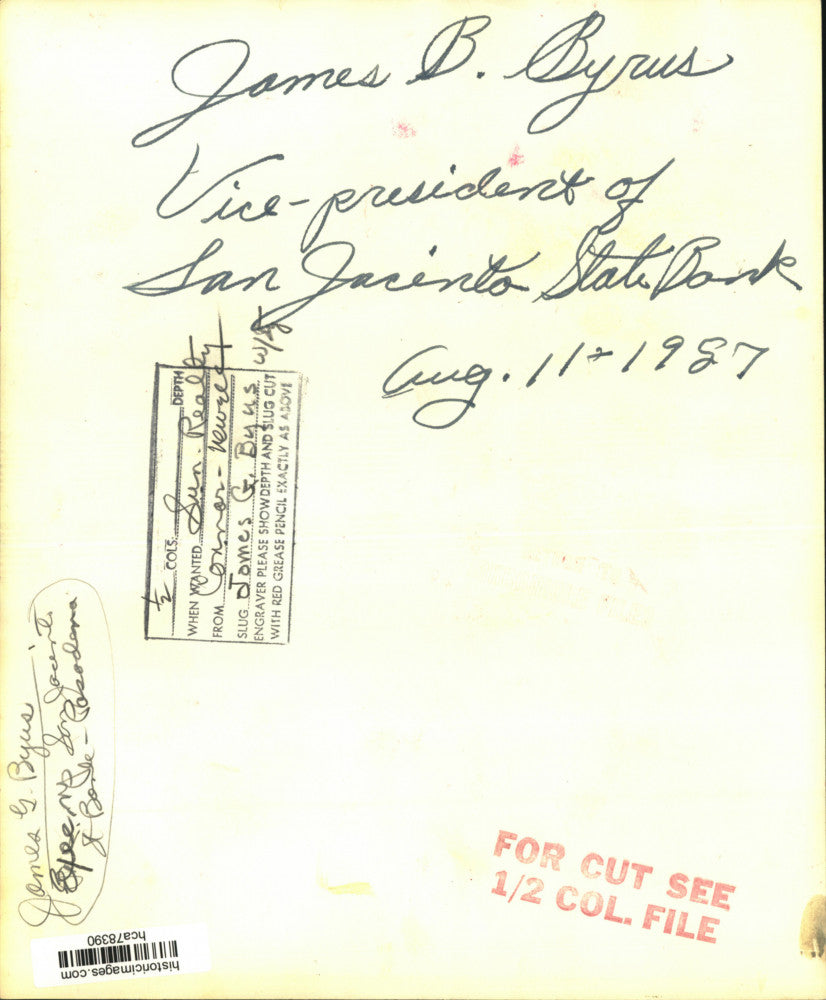 James B. Byrus
Vice-president of
San Jacinto State Bank
Aug. 11 - 1987
1/2 COLS. DEPTH
WHEN WANTED Sun. Realty
FROM Connor-
SLUG James G. Byus w/g
ENGRAVER PLEASE SHOW DEPTH AND SLUG CUT
WITH RED GREASE PENCIL EXACTLY AS ABOVE
James G. Byus
San Jacinto
Bank - Pasadena
FOR CUT SEE
1/2 COL. FILE
historicimages.com
hca78390